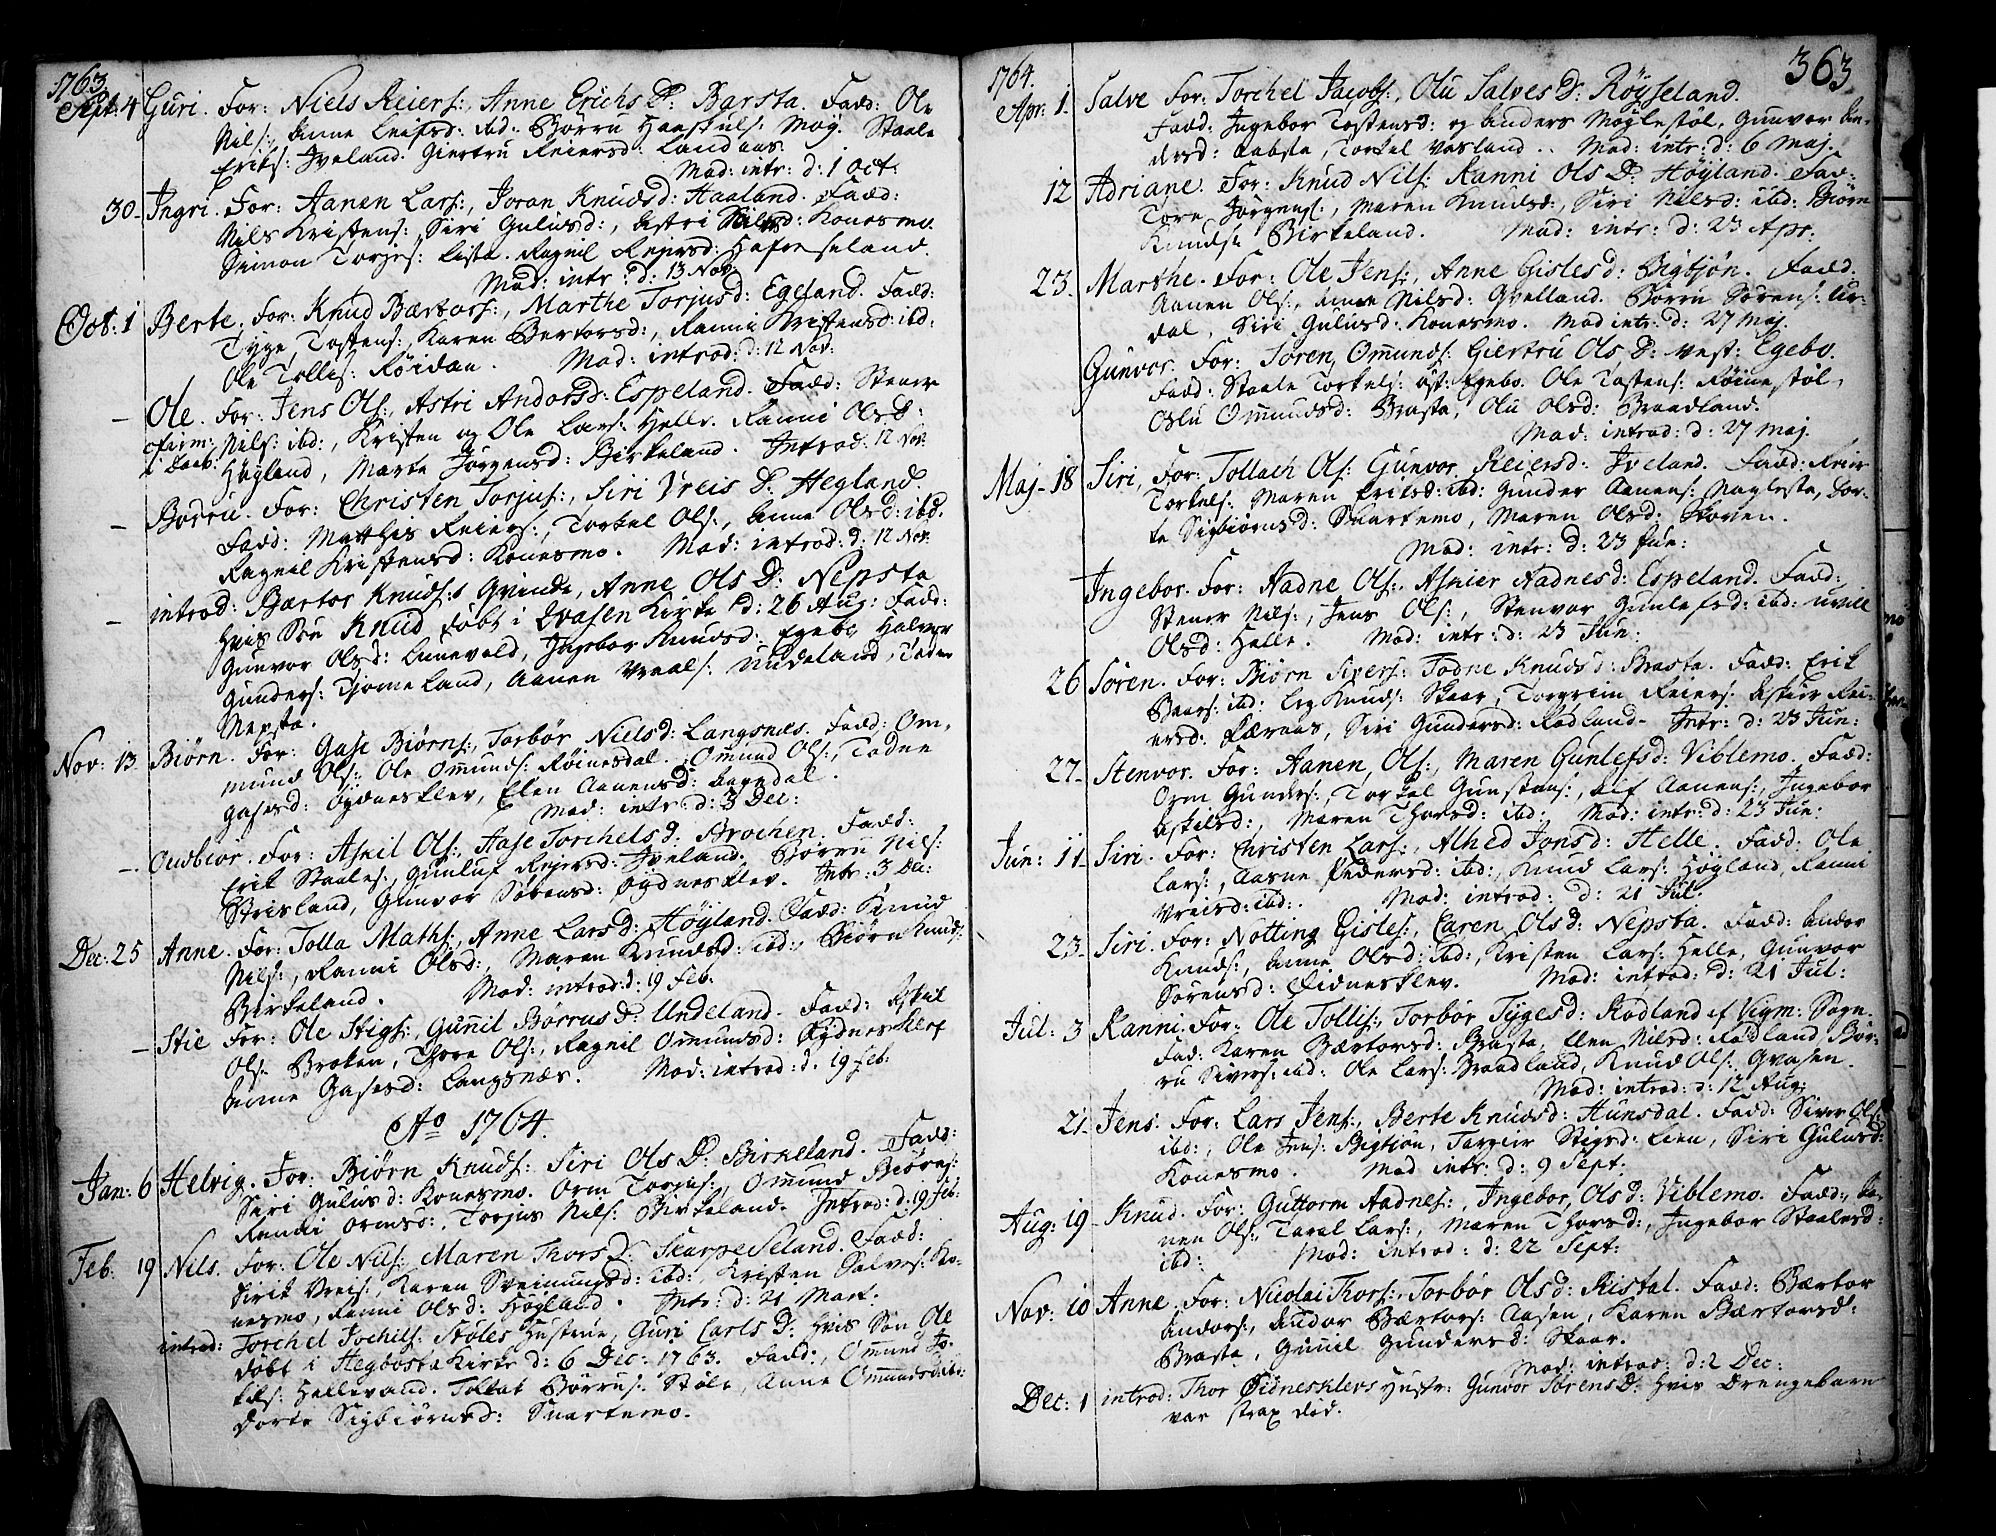 1763.
Sept: 4 Guri. For: Niels Reiers:, Anne Erichs D: Barsta. Fadd: Ole
Nils:, Anne Leifsd: ibd: Børru Haaskuls: Møy. Staale
Eriks: Jveland. Giertru Reiersd: Landaas.
Mod: intr: d: 1 Oct:
30 Ingri. For: Aanen Lars:, Joran Knudsd: Haaland. Fadd:
Nils Kristens: Siri Gulusd:, Astri Konesmo.
Simon Torjes: Lista. Ragnil Reiersd: Hafreseland.
Mod: intr: d: 13 Nov:
Oct: 1 Berte. For: Knud Bærtors:, Marthe Torjusd: Egeland. Fadd:
Tyge Tostens: Karen Bertorsd:, Ranni Kristensd: ibd:
Ole Tollis: Röidan. Mod: introd: d: 12 Nov:
– Ole. For: Jens Ols:, Astri Andorsd: Espeland. Fadd: Stener
Nils: ibd:, Kristen og Ole Lars: Helle. Ranni Olsd:
Høyland, Marte Jörgensd: Birkeland. Introd: 12 Nov:
– Börru. For: Christen Torjus:, Siri Vreis D: Hegland.
Fadd: Matthis Reiers:, Torkel Ols:, Anne Olsd: ibd.
Ragnil Kristensd: Konesmo. Mod: introd: d: 12 Nov:
– introd: Bærtor Knuds:s Qvinde, Anne Ols D: Nepsta
hvis Sön Knud döbt i Qvaasen Kirke d: 26 Aug: Fadd:
Gunvor Olsd: Lunevold, Ingebor Knudsd: Egebo Halvor
Gunders: Tjomeland, Aanen Vreals: Undeland,
Nepsta.
Nov: 13 Biørn. For: Gase Biørns:, Torbör Nielsd: Langsnes. Fadd: Om-
mund Ols: Ole Omunds: Röinesdal. Omund Ols:, Todne
Gasesd: Öydnesklev, Elen Aanensd:
Mod: intr: d: 3 Dec:
– Oudbior. For: Asnil Ols:, Aase Torchelsd: Brochen. Fadd:
Erik Staales:, Gunluf Rejersd: Jveland. Börru Nils:
Strisland, Gunvor Sörensd: Öydnesklev. Intr: 3 De:
Dec: 25 Anne. For: Tolla Maths:, Anne Larsd: Höyland. Fadd: Knud
Nils:, Ranni Olsd:, Maren Knudsd: ibd:, Biörn Knuds:
Birkeland. Mod: introd: d: 19 Feb:
– Stie For: Ole Stigs:, Gunil Börrus D: Undeland. Fadd: Eskil
Ols: Broken, Thore Ols:, Ragnil Omundsd: Öydnesklef
Anne Gasesd: Langsnæs. Mod: introd: d: 19 Feb:
Ao 1764.
Jan: 6 Helvig. For: Biørn Knuds: Siri Ols D: Birkeland. Fadd:
Siri Gulusd: Konesmo. Orm Torjus:, Omund Biörns:
Ranni Ormsd:, Torjus Nils: Birkeland. Introd: d: 19 Feb:
Feb: 19 Nils. For: Ole Nils: Maren Thors D: Skarpeseland. Fadd:
Eirik Vreis:, Karen Sveinungsd: ibd:, Kristen Salves: Ko-
nesmo, Ranni Olsd: Høgland. Intr: d: 21 Mart:
introd: Torchel Jochils: Støles Hustrue, Guri Carls D: hvis Sön Ole
döbt i Hegbosta Kirke d: 6 Dec: 1763. Fadd:, Omund Jo-
kils: Hellevand. Tollak Börrus: Støle, Anne Omundsdatt:
Dorte Sigbiörnsd: Snartemo.
363
1764.
Apr: 1 Salve For: Torchel Jacobs:, Olu Salves D: Röysseland.
Fadd: Ingebor Tostensd: og Anders Møglestøl, Gunvor An-
dersd: Aabste, Torkel Vosland.. Mod: intr: d: 6 Maj.
12 Adriane. For: Knud Nils: Ranni Ols D: Höyland. Fad:
Tore Jörgens:, Maren Knudsd:, Siri Nilsd: ibd: Biørn
Knuds: Birkeland. Mod: intr: d: 23 Apr:
23. Marthe. For: Ole Jens:, Anne Gislesd: Bigtjön. Fadd:
Aanen Ols:, Anne Nilsd: Qvelland. Börru Sörens: Ur-
dal, Siri Gulusd: Konesmo. Mod intr: d: 27 Maj.
Gunvor. For: Sören Omunds: Giertru Ols D: Vest: Egebo.
Fadd: Staale Torkels: Öst: Egebo. Ole Tostens: Röimestöl,
Oslu Omundsd: Brasta, Olu Olsd: Braadland.
Mod: introd: d: 27 Maj.
Maj. 18 Siri, For: Tollach Ols: Gunvor Reiersd: Jveland. Fadd: Reier
Torkels: Maren Eriksd: ibd: Gunder Aanens: Møglestø, Dor-
te Sigbiörnsd: Snartemo, Maren Olsd: Skoven.
Mod: intr: d: 23 Jun:
Ingebor. For: Aadne Ols:, Asnier Aadnesd: Espeland. Fadd:
Stener Nils:, Jens Ols:, Stenvor Gunlefsd: ibd:
Olsd: Helle. Mod: intr: d: 23 Jun:
26 Sören. For: Biörn Sivers: Todne Knudsd: Brasta. Fadd: Erik
Baars: ibd: Knuds: Skaar, Torgrim Reiers: Rei-
ersd: Færaas, Siri Gundersd: Rødland. Intr: d: 23 Jun:
27. Stenvor. For: Aanen Ols:, Maren Gunlefsd: Viblemo. Fadd:
Orm Gunders:, Torkel Gunstens:, Alf Aanens:, Ingebor
Askelsd:, Maren Thorsd: ibd: Mod: introd: d: 23 Jun:
Jun: 11 Siri. For: Christen Lars:, Alhed Jonsd: Helle. Fadd: Ole
Lars:, Aasne Pedersd: ibd:, Knud Lars: Høgland, Ranni
Vreisd: ibd:. Mod: introd: d: 21 Jul:
23 Siri. For: Notting Gisles:, Caren Olsd: Nepsta. Fadd: Andor
Knuds:, Anne Olsd: ibd:, Kristen Lars: Helle, Gunvor
Sörensd: Öidnesklev. Mod: introd: d: 21 Jul:
Jul: 3 Ranni. For: Ole Tollis:, Torbör Tygesd: Rødland af Vigm: Sogn.
Fad: Karen Bærtorsd: Brasta, Elen Nilsd: Rødland, Bör-
ru Sivers: ibd: Ole Lars: Braadland, Knud Ols: Qvasen.
Mod: introd: d: 12 Aug:
21 Jens. For: Lars Jens:, Berte Knudsd: Hunsdal. Fadd: Siver Ols:
ibd:, Ole Jens: Bigtjön, Targeir Stigsd: Lien, Siri Gulusd:
Konesmo. Mod intr: d: 9 Sept:
Aug: 19 Knud. For: Guttorm Aadnes:, Ingebor Olsd: Viblemo. Fadd: Aa-
nen Ols:, Taral Lars:, Maren Thorsd:, Ingebor Staalesd:
ibd: Mod: introd: d: 22 Sept:
Nov: 10 Anne. For: Nicolai Thors:, Torbör Olsd: Ristal. Fadd: Bærtor
Andors:, Andor Bærtors: Aasen, Karen Bærtorsd:
Brasta, Gunil Gundersd: Skaar.
Mod: introd: d: 2 Dec:
Dec: 1 introd: Thor Öidnesklevs Hustr: Gunvor Sörens D: hvis Drengebarn
var strax död.